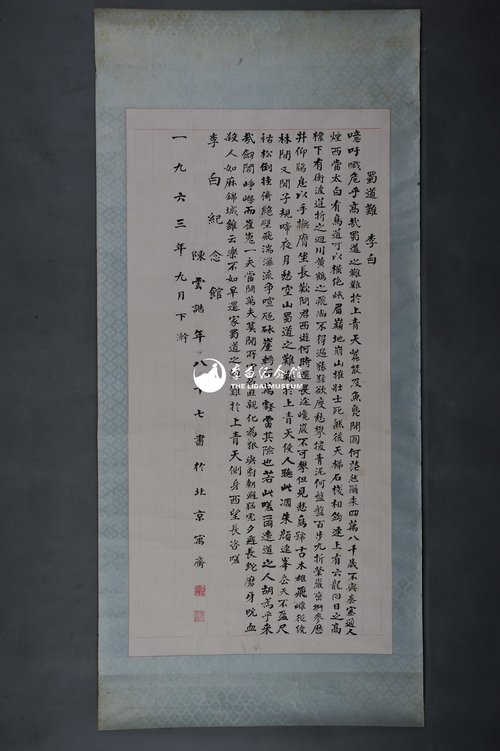 蜀道難 李白
噫吁嚱危乎高哉蜀道之難難於上青天蠶叢及魚鳧開國何茫然爾來四萬八千歲不與秦塞通人
煙西當太白有鳥道可以橫絕峨眉巔地崩山摧壯士死然後天梯石棧相鉤連上有六龍回日之高
標下有衝波逆折之迴川黃鶴之飛尚不得過猿猱欲度愁攀援青泥何盤盤百步九折縈巖巒捫參歷
井仰脅息以手撫膺坐長歎問君西遊何時還畏途巉巖不可攀但見悲鳥號古木雄飛雌從繞
林間又聞子規啼夜月愁空山蜀道之難難於上青天使人聽此凋朱顏連峯去天不盈尺
枯松倒挂倚絕壁飛湍瀑流爭喧豗砯崖轉石萬壑雷其險也若此嗟爾遠道之人胡為乎來
哉劍閣崢嶸而崔嵬一夫當關萬夫莫開所守或匪親化為狼與豺朝避猛虎夕避長蛇磨牙吮血
殺人如麻錦城雖云樂不如早還家蜀道之難難於上青天側身西望長咨嗟
李白紀念館
陳雲誥年八十七書於北京寓齋
一九六三年九月下澣
李白紀念館
THE LIBAI MUSEUM